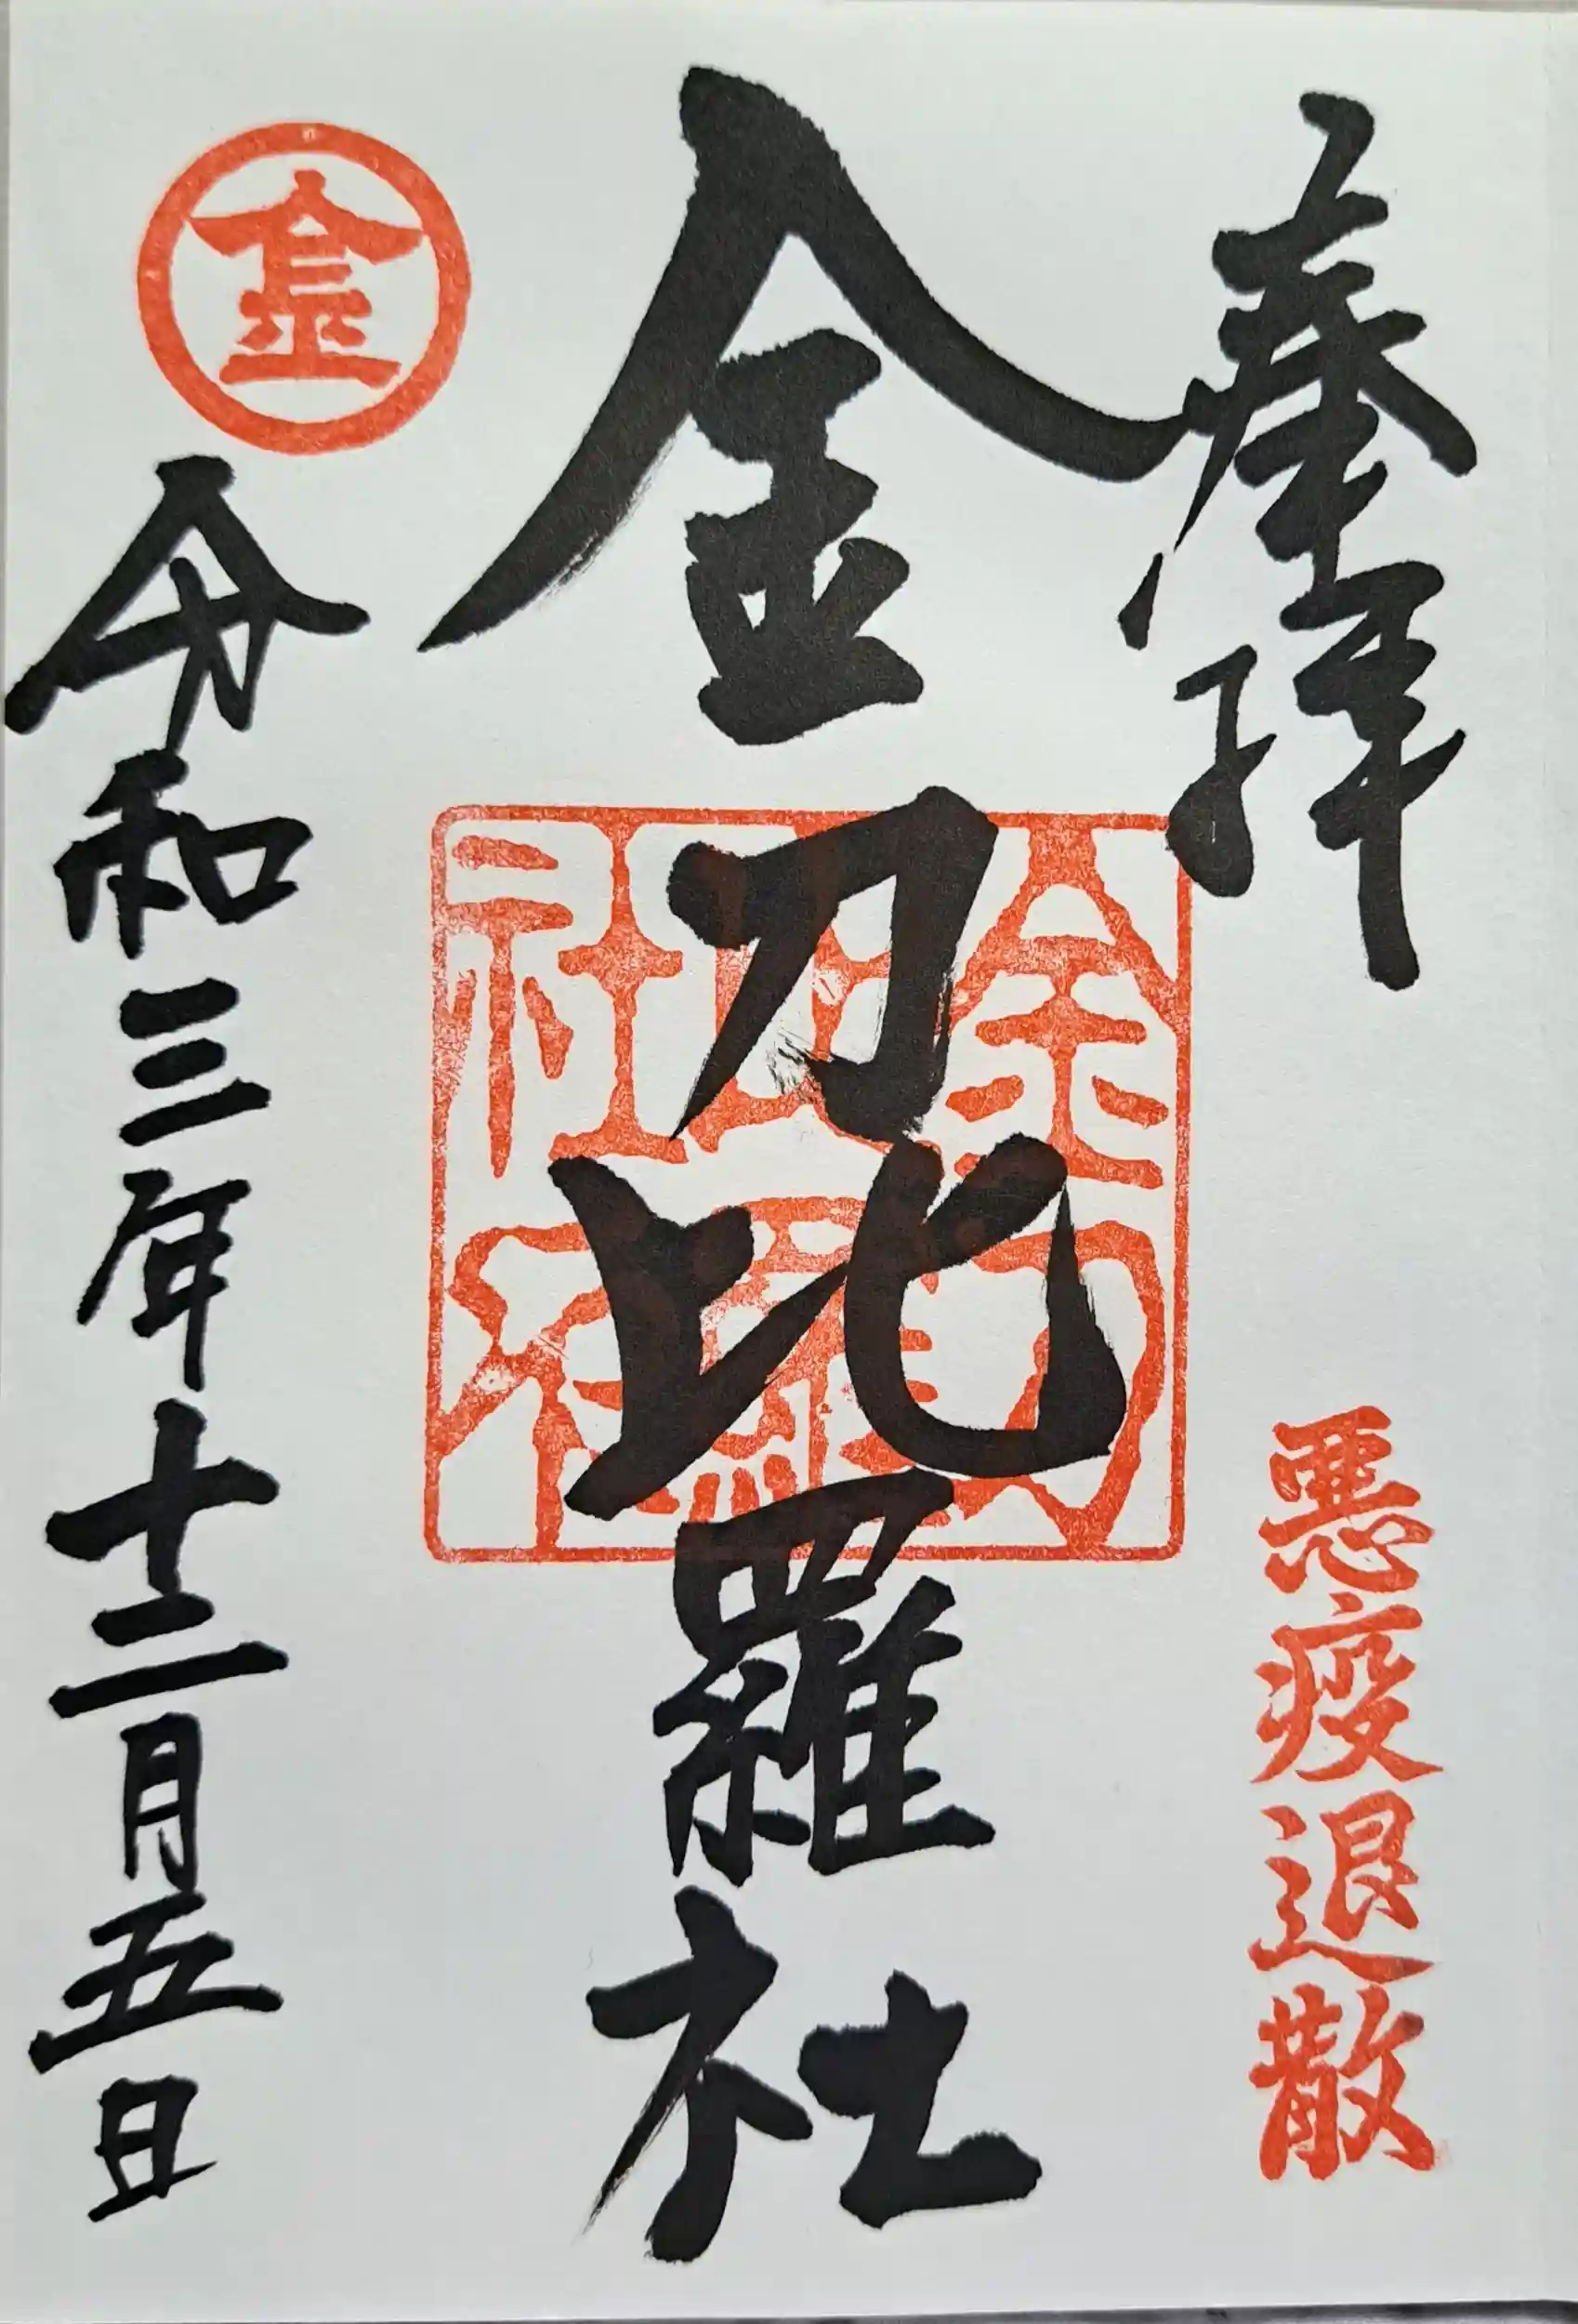 奉拝
悪疫退散
金刀比羅社
金刀
比羅
社
金
令和三年十二月五日